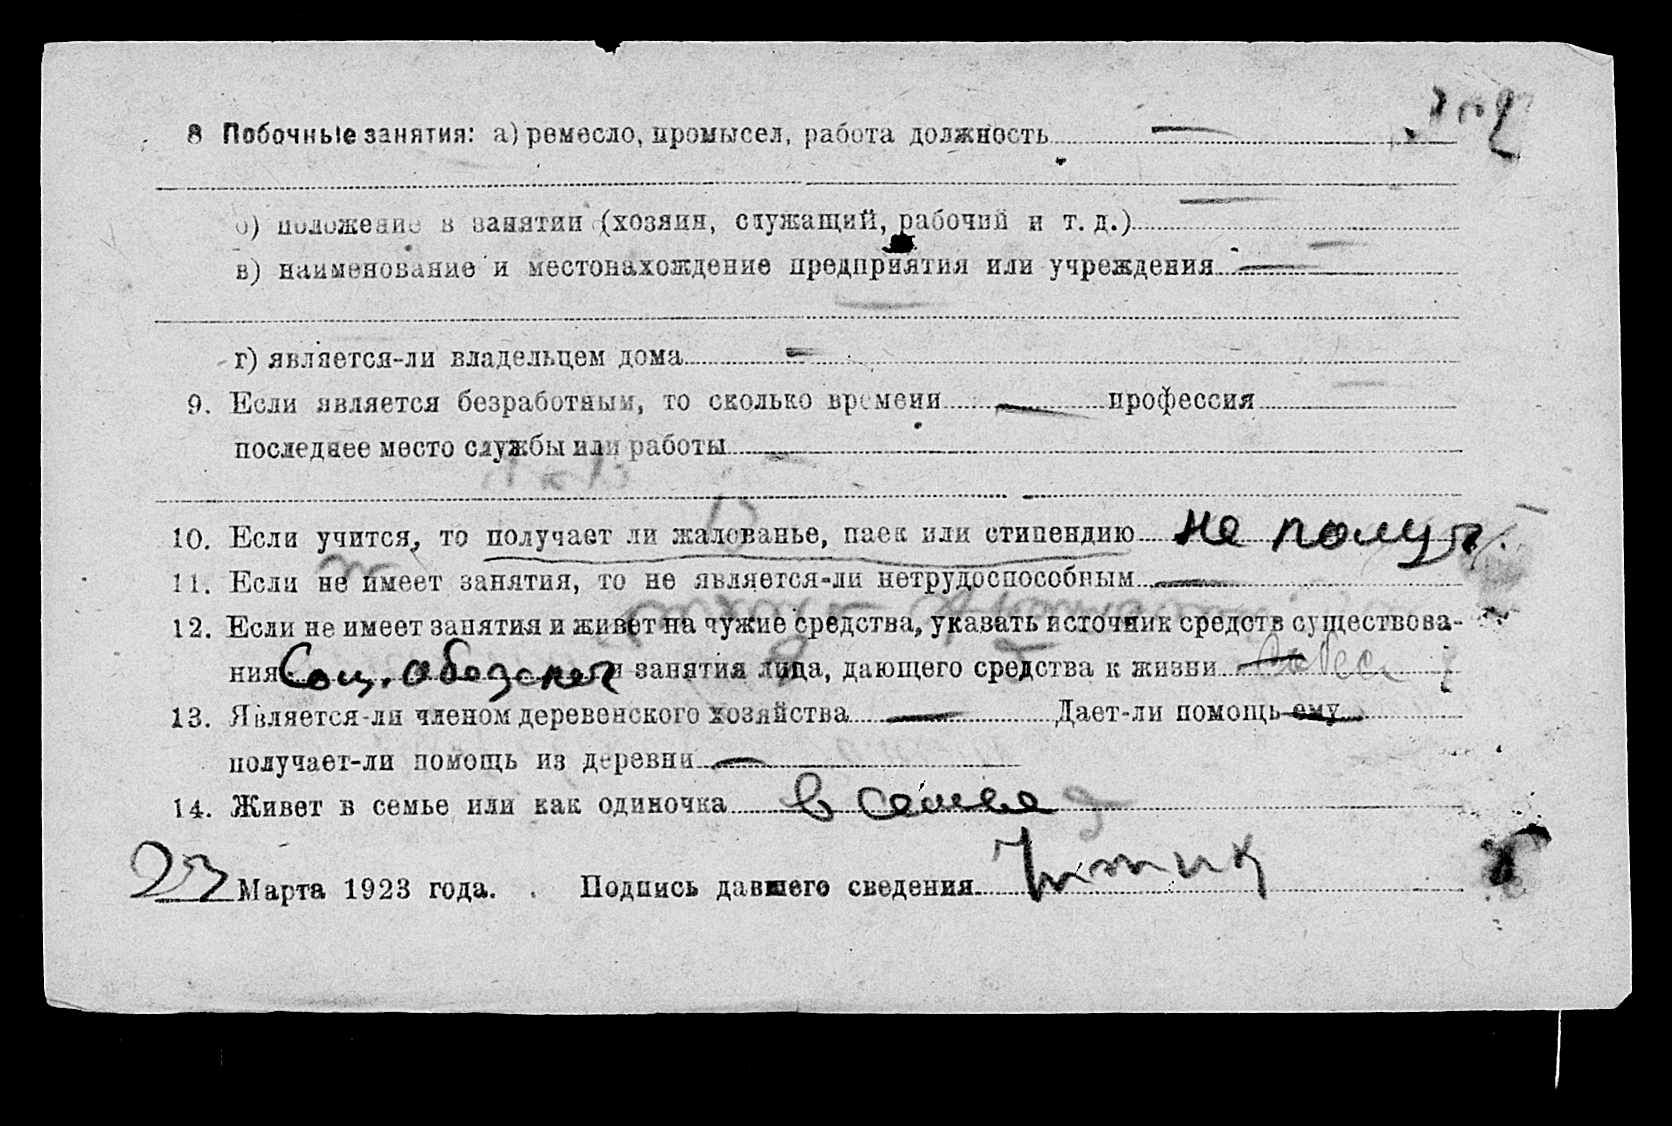 8 Побочные занятия: а) ремесло, промысел, работа должность —
б) положение в занятии (хозяин, служащий, рабочий и т. д.) —
в) наименование и местонахождение предприятия или учреждения —
г) является-ли владельцем дома —
9. Если является безработным, то сколько времени — профессия
последнее место службы или работы —
10. Если учится, то получает ли жалованье, паек или стипендию не получ
11. Если не имеет занятия, то не является-ли нетрудоспособным —
12. Если не имеет занятия и живет на чужие средства, указать источник средств существова-
ния Соц. обеспеч и занятия лица, дающего средства к жизни —
13. Является-ли членом деревенского хозяйства — Дает-ли помощь ему
получает-ли помощь из деревни —
14. Живет в семье или как одиночка в семье
23 Марта 1923 года. Подпись давшего сведения